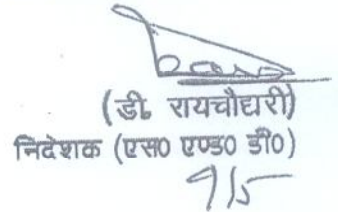 (डी. रायचौधरी)
निदेशक (एस० एण्ड० डी०)
9/5